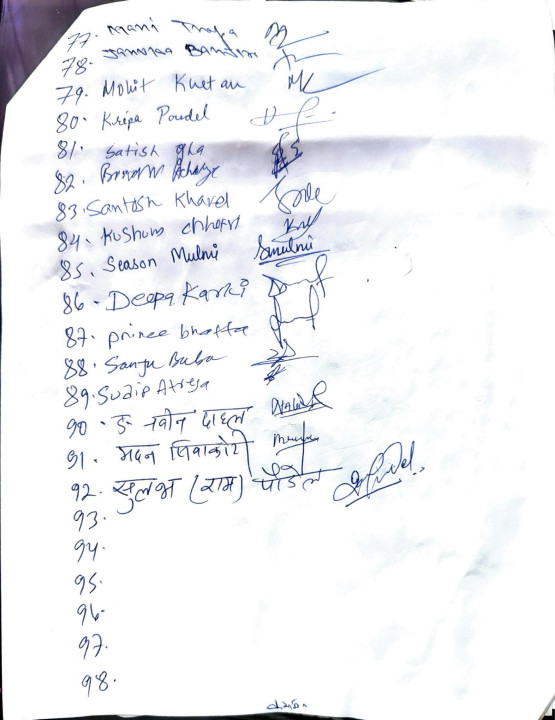 77. Mani Thapa
78. Jamunaa
79. Mohit Khetan
80. Kripa Poudel
81. Satish Jha
82.
83. Santosh Kharel
84. Kushum chhetri
85. Season Mulmi Smulmi
86. Deepa Karki
87. prince bhatta
88. Sanju Baba
89. Sudip Atreya
90. इ. नवीन दाहाल
91. मदन सिवाकोटी
92. सुलभ (राम) पौडेल
93.
94.
95.
96.
97.
98.